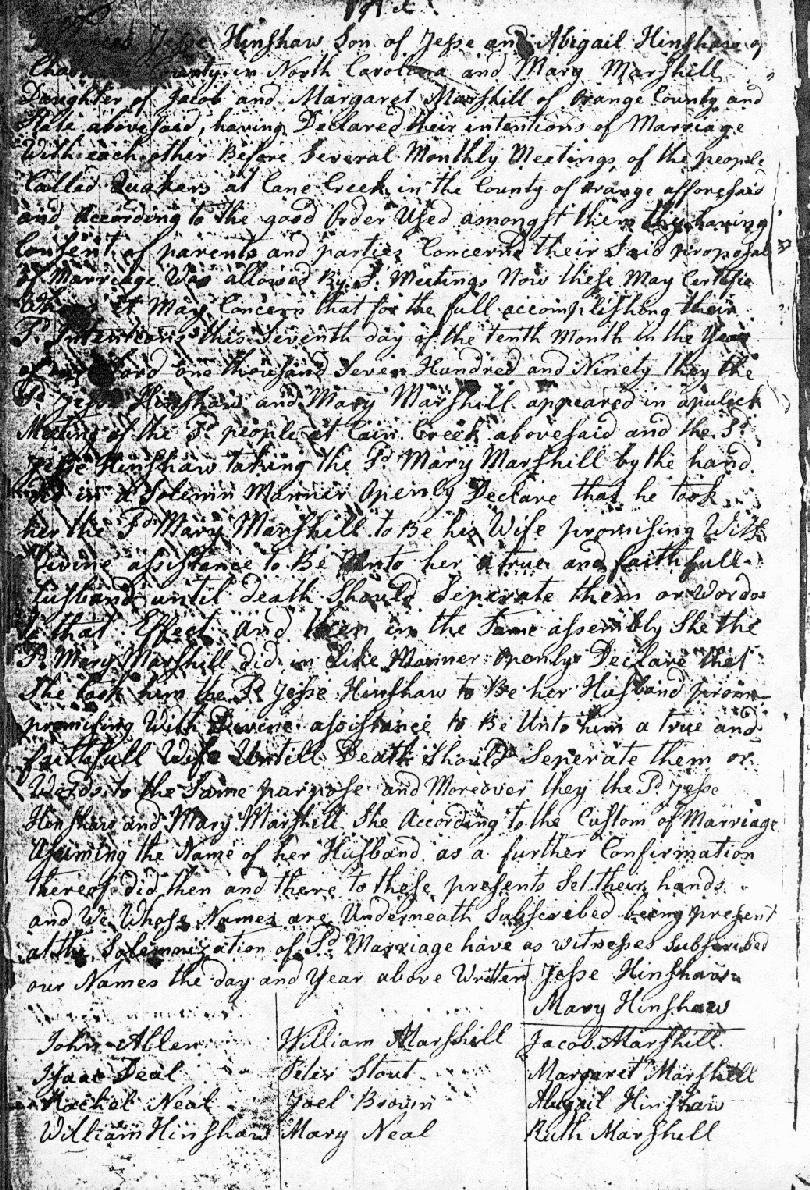 Jesse Hinshaw Son of Jesse and Abigail Hinshaw of
County in North Carolina and Mary Marshill
Daughter of Jacob and Margaret Marshill of orange County and
State abovesaid, having Declared their intentions of Marriage
With each other Before Several Monthly Meetings of the people
Called Quakers at Cane Creek in the County of orange afforesaid
and According to the good Order Used amongst them they having
Consent of parents and parties Concernd their Said proposal
of Marriage Was allowed By Sd. Meetings Now these May Certifie
it May Concern that for the full accomplishing their
Sd. Intentions this Seventh day of the tenth Month in the Year
of our Lord one thousand Seven Hundred and Ninety they the
Sd. Jesse Hinshaw and Mary Marshill appeared in a publick
Meeting of the Sd. people at Cain Creek abovesaid and the Sd.
Jesse Hinshaw taking the Sd. Mary Marshill by the hand
in a Solemn Manner Openly Declare that he took
her the Sd. Mary Marshill to Be his Wife promising With
Divine assistance to Be Unto her a true and faithfull
husband until death Should Seperate them or Words
to that Effect and then in the Same assembly She the
Sd. Mary Marshill did in Like Manner openly Declare that
She took him the Sd. Jesse Hinshaw to Be her Husband prom
promising With Devine assistance to Be Unto him a true and
faithfull Wife Untill Death Should Seperate them or
Words to the Same purpose and Moreover they the Sd. Jesse
Hinshaw and Mary Marshill She According to the Custom of Marriage
Asuming the Name of her Husband as a further Confirmation
thereof did then and there to these presents Set their hands
and We Whose Names are Underneath Subscribed being present
at the Solemnization of Sd. Marriage have as witnesses Subscribed
our Names the day and Year above Written Jesse Hinshaw
Mary Hinshaw
John Allen William Marshill Jacob Marshill
Isaac Deal Peter Stout Margaret Marshill
Rachel Neal Joel Brown Abigail Hinshaw
William Hinshaw Mary Neal Ruth Marshell